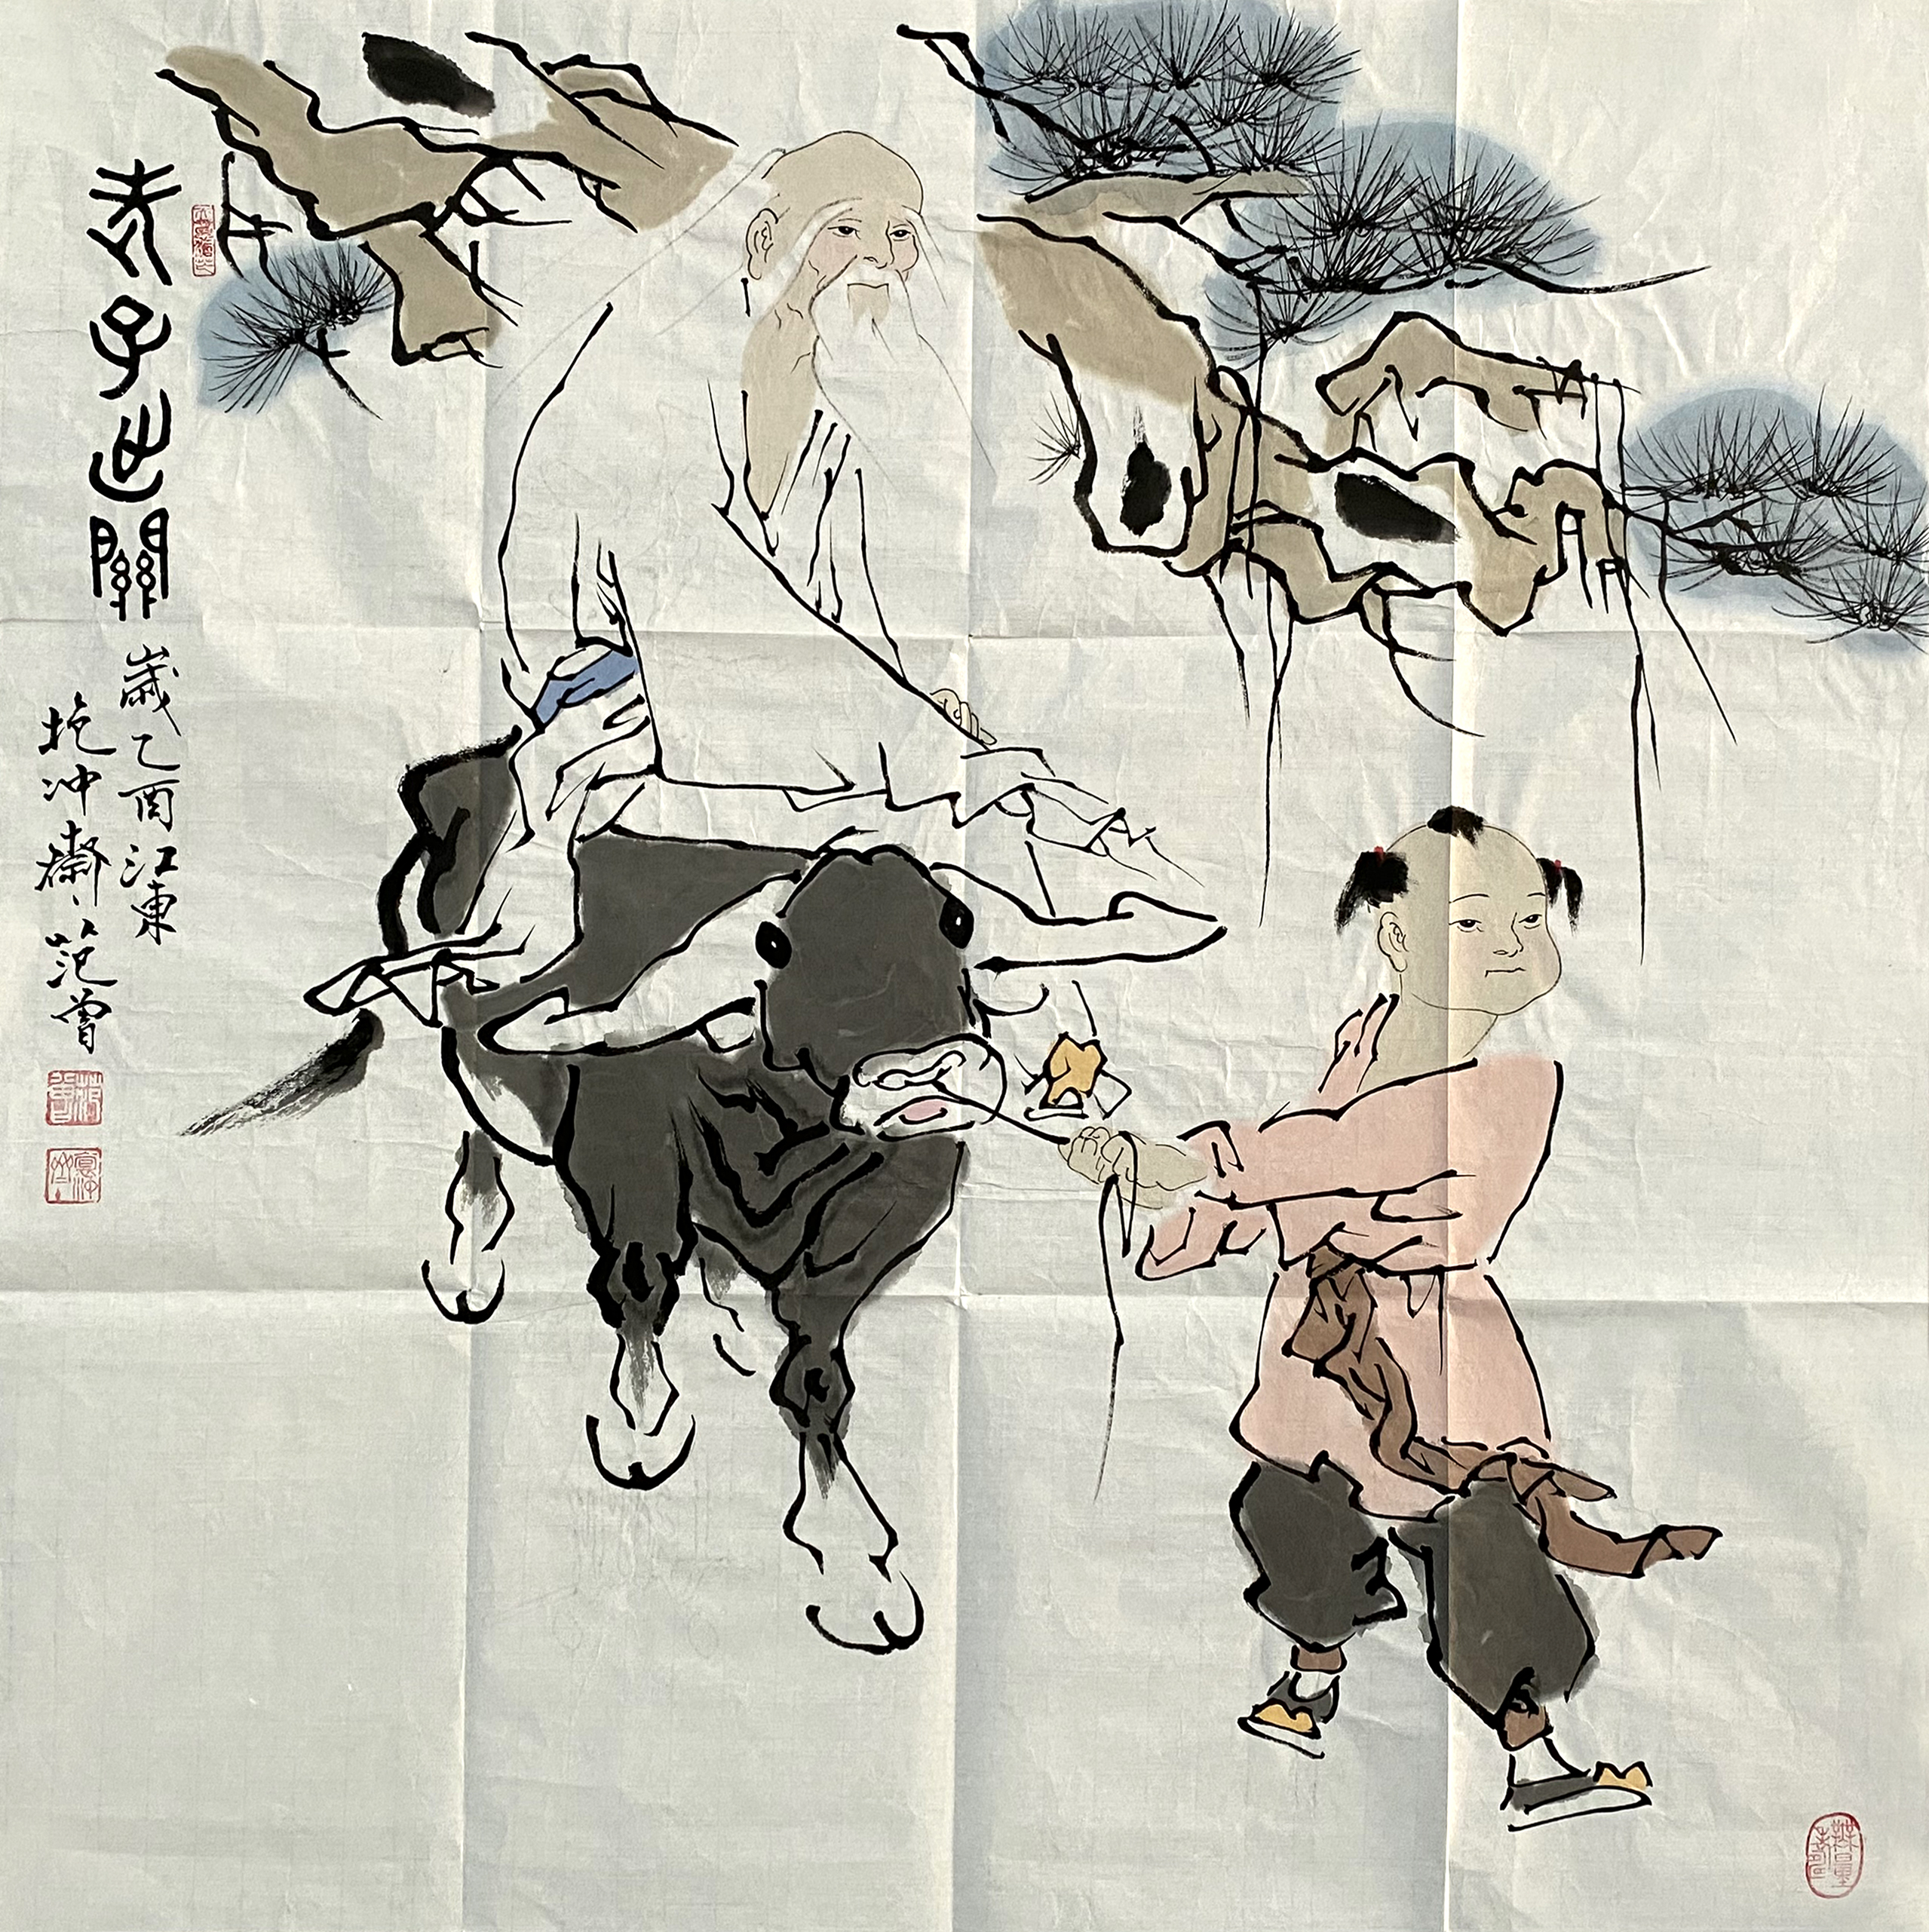 老子出關
歲乙酉江東
抱冲齋、范曾
范曾